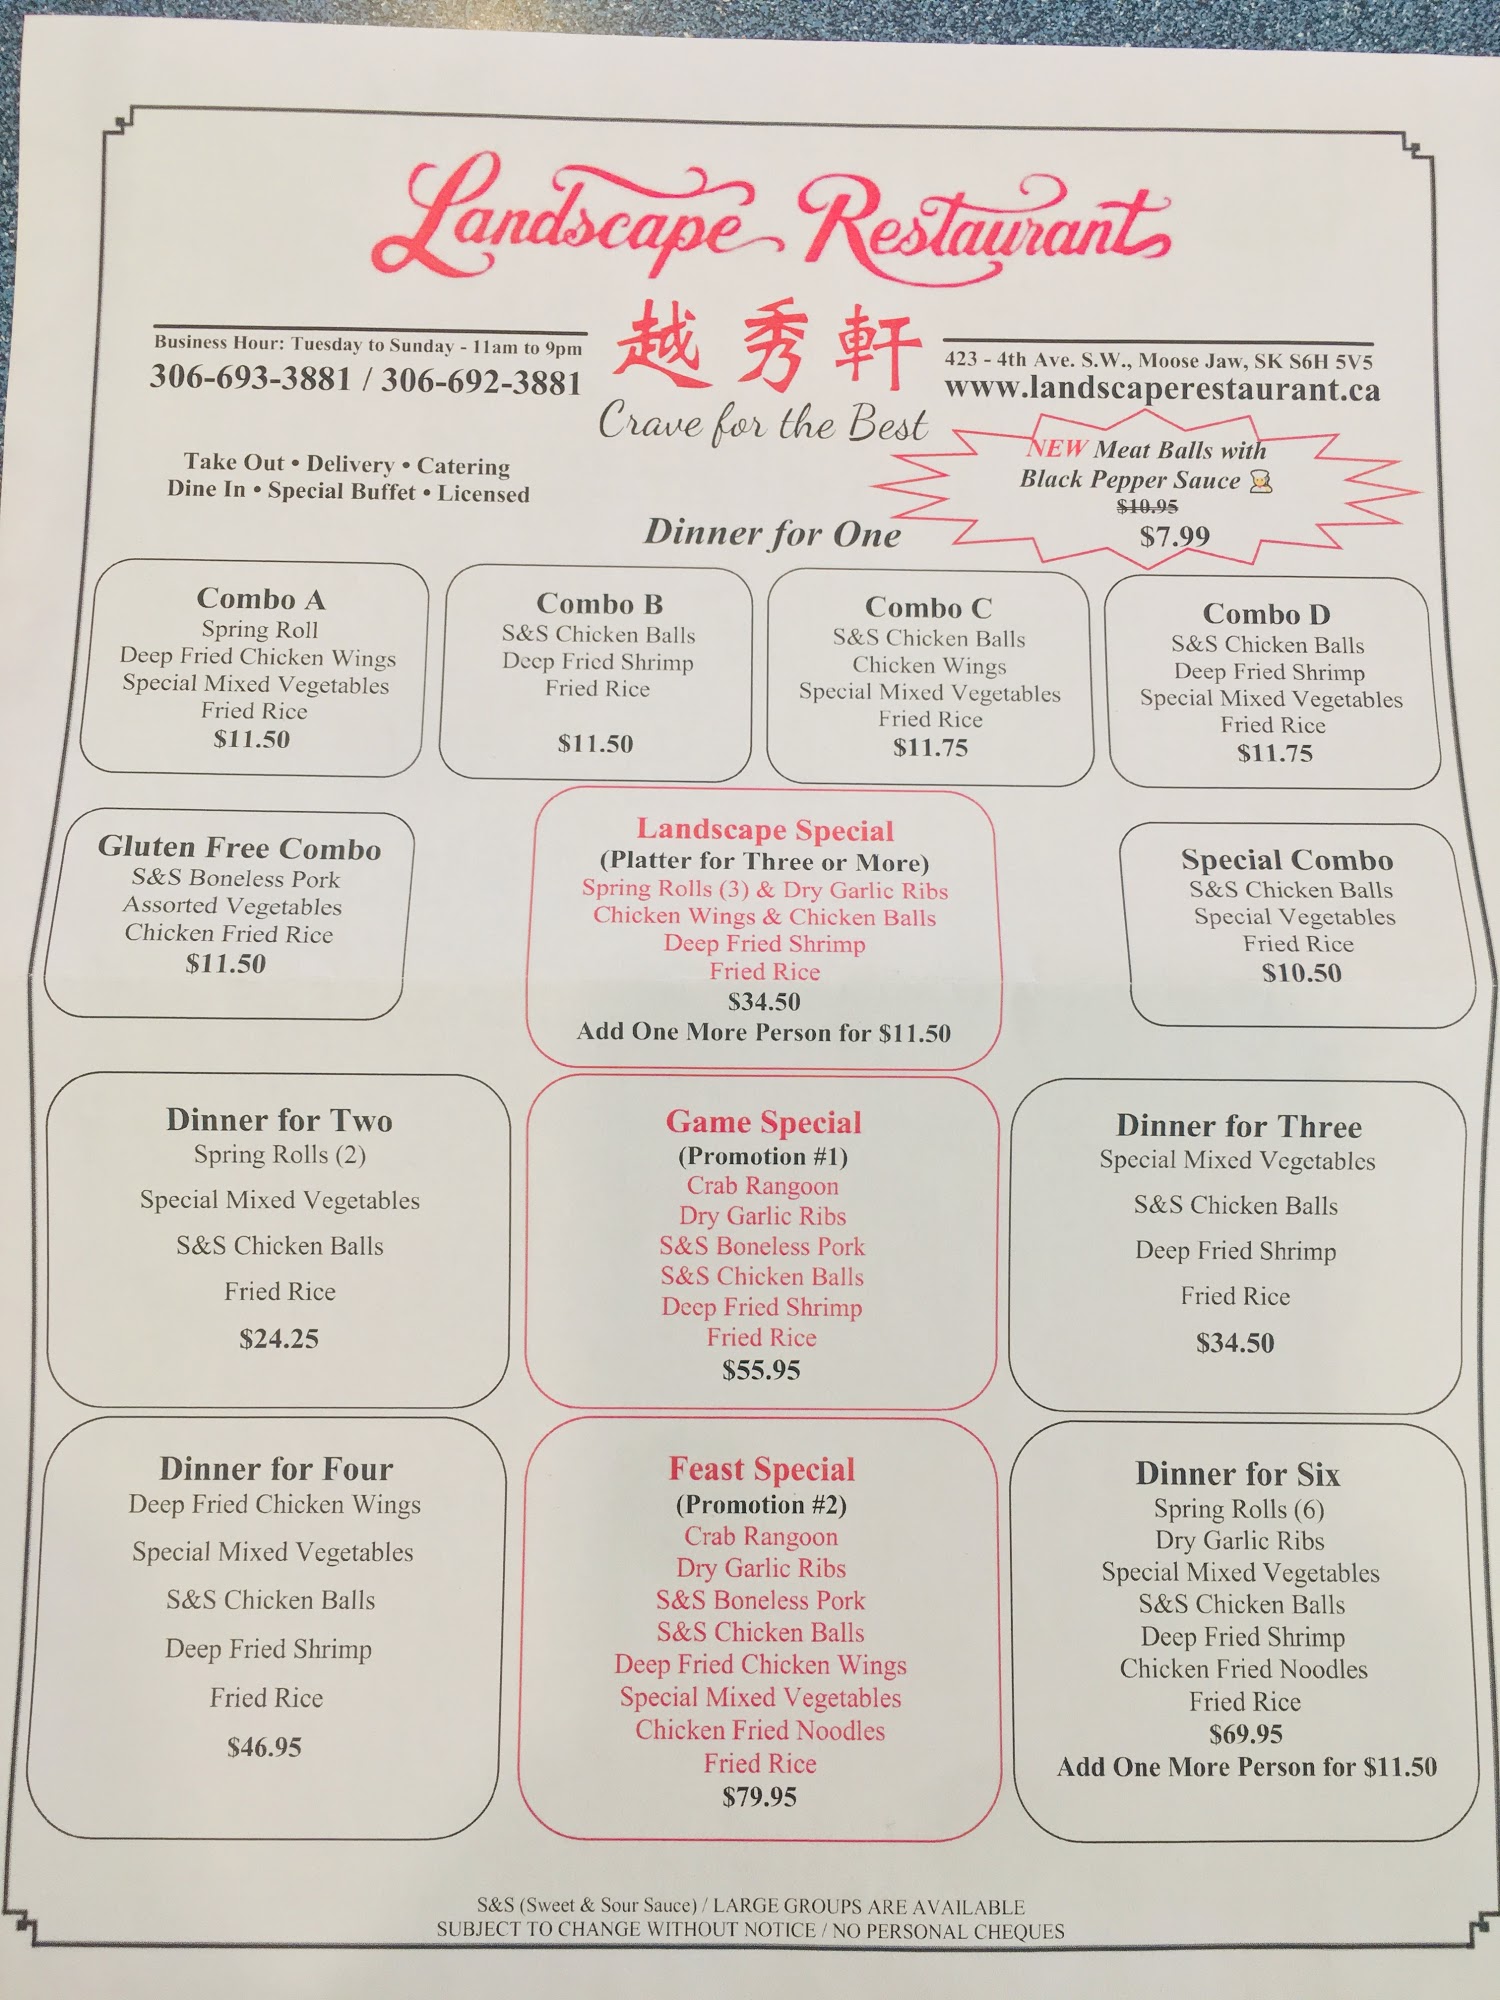 Landscape Restaurant
越秀軒
Crave for the Best
Business Hour: Tuesday to Sunday - 11am to 9pm
306-693-3881 / 306-692-3881
423 - 4th Ave. S.W., Moose Jaw, SK S6H 5V5
www.landscaperestaurant.ca
Take Out • Delivery • Catering
Dine In • Special Buffet • Licensed
NEW Meat Balls with
Black Pepper Sauce
$10.95
$7.99
Dinner for One
Combo A
Spring Roll
Deep Fried Chicken Wings
Special Mixed Vegetables
Fried Rice
$11.50
Combo B
S&S Chicken Balls
Deep Fried Shrimp
Fried Rice
$11.50
Combo C
S&S Chicken Balls
Chicken Wings
Special Mixed Vegetables
Fried Rice
$11.75
Combo D
S&S Chicken Balls
Deep Fried Shrimp
Special Mixed Vegetables
Fried Rice
$11.75
Gluten Free Combo
S&S Boneless Pork
Assorted Vegetables
Chicken Fried Rice
$11.50
Landscape Special
(Platter for Three or More)
Spring Rolls (3) & Dry Garlic Ribs
Chicken Wings & Chicken Balls
Deep Fried Shrimp
Fried Rice
$34.50
Add One More Person for $11.50
Special Combo
S&S Chicken Balls
Special Vegetables
Fried Rice
$10.50
Dinner for Two
Spring Rolls (2)
Special Mixed Vegetables
S&S Chicken Balls
Fried Rice
$24.25
Game Special
(Promotion #1)
Crab Rangoon
Dry Garlic Ribs
S&S Boneless Pork
S&S Chicken Balls
Deep Fried Shrimp
Fried Rice
$55.95
Dinner for Three
Special Mixed Vegetables
S&S Chicken Balls
Deep Fried Shrimp
Fried Rice
$34.50
Dinner for Four
Deep Fried Chicken Wings
Special Mixed Vegetables
S&S Chicken Balls
Deep Fried Shrimp
Fried Rice
$46.95
Feast Special
(Promotion #2)
Crab Rangoon
Dry Garlic Ribs
S&S Boneless Pork
S&S Chicken Balls
Deep Fried Chicken Wings
Special Mixed Vegetables
Chicken Fried Noodles
Fried Rice
$79.95
Dinner for Six
Spring Rolls (6)
Dry Garlic Ribs
Special Mixed Vegetables
S&S Chicken Balls
Deep Fried Shrimp
Chicken Fried Noodles
Fried Rice
$69.95
Add One More Person for $11.50
S&S (Sweet & Sour Sauce) / LARGE GROUPS ARE AVAILABLE
SUBJECT TO CHANGE WITHOUT NOTICE / NO PERSONAL CHEQUES